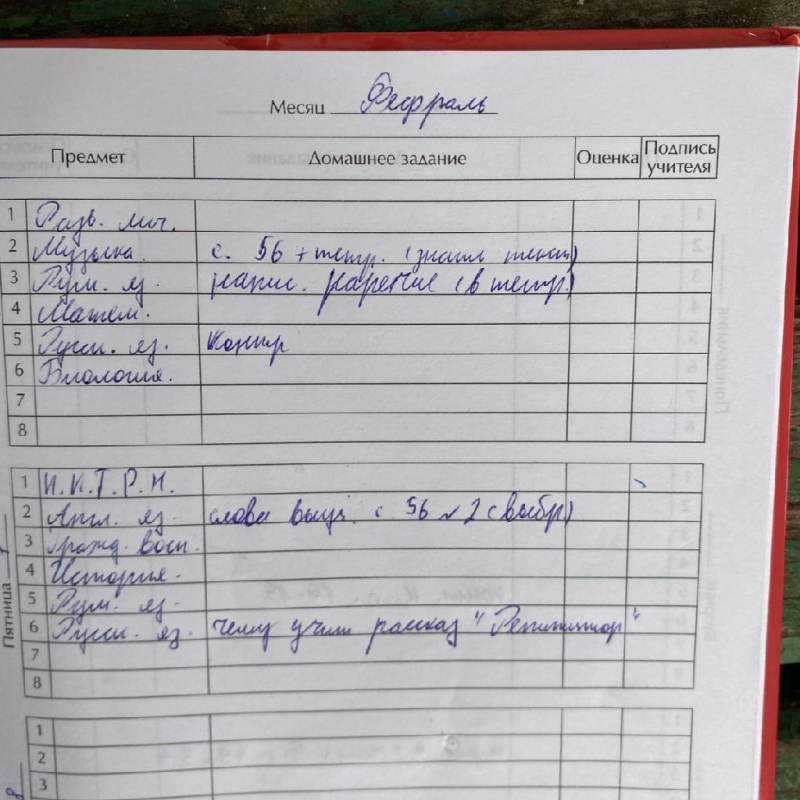 Месяц Февраль
Предмет Домашнее задание Оценка Подпись учителя
1 Разв. лич.
2 Музыка. с. 56 + тетр. (знать текст)
3 Рум. яз. напис. наречие (в тетр.)
4 Матем.
5 Русск. яз. Контр
6 Биология.
7
8
Пятница
1 И.К.Т.Р.Н.
2 Англ. яз. слова выуч. с 56 №2 (выбр)
3 Гражд. восп.
4 История.
5 Рум. яз.
6 Русск. яз. чему учит рассказ "Репетитор"
7
8
1
2
3